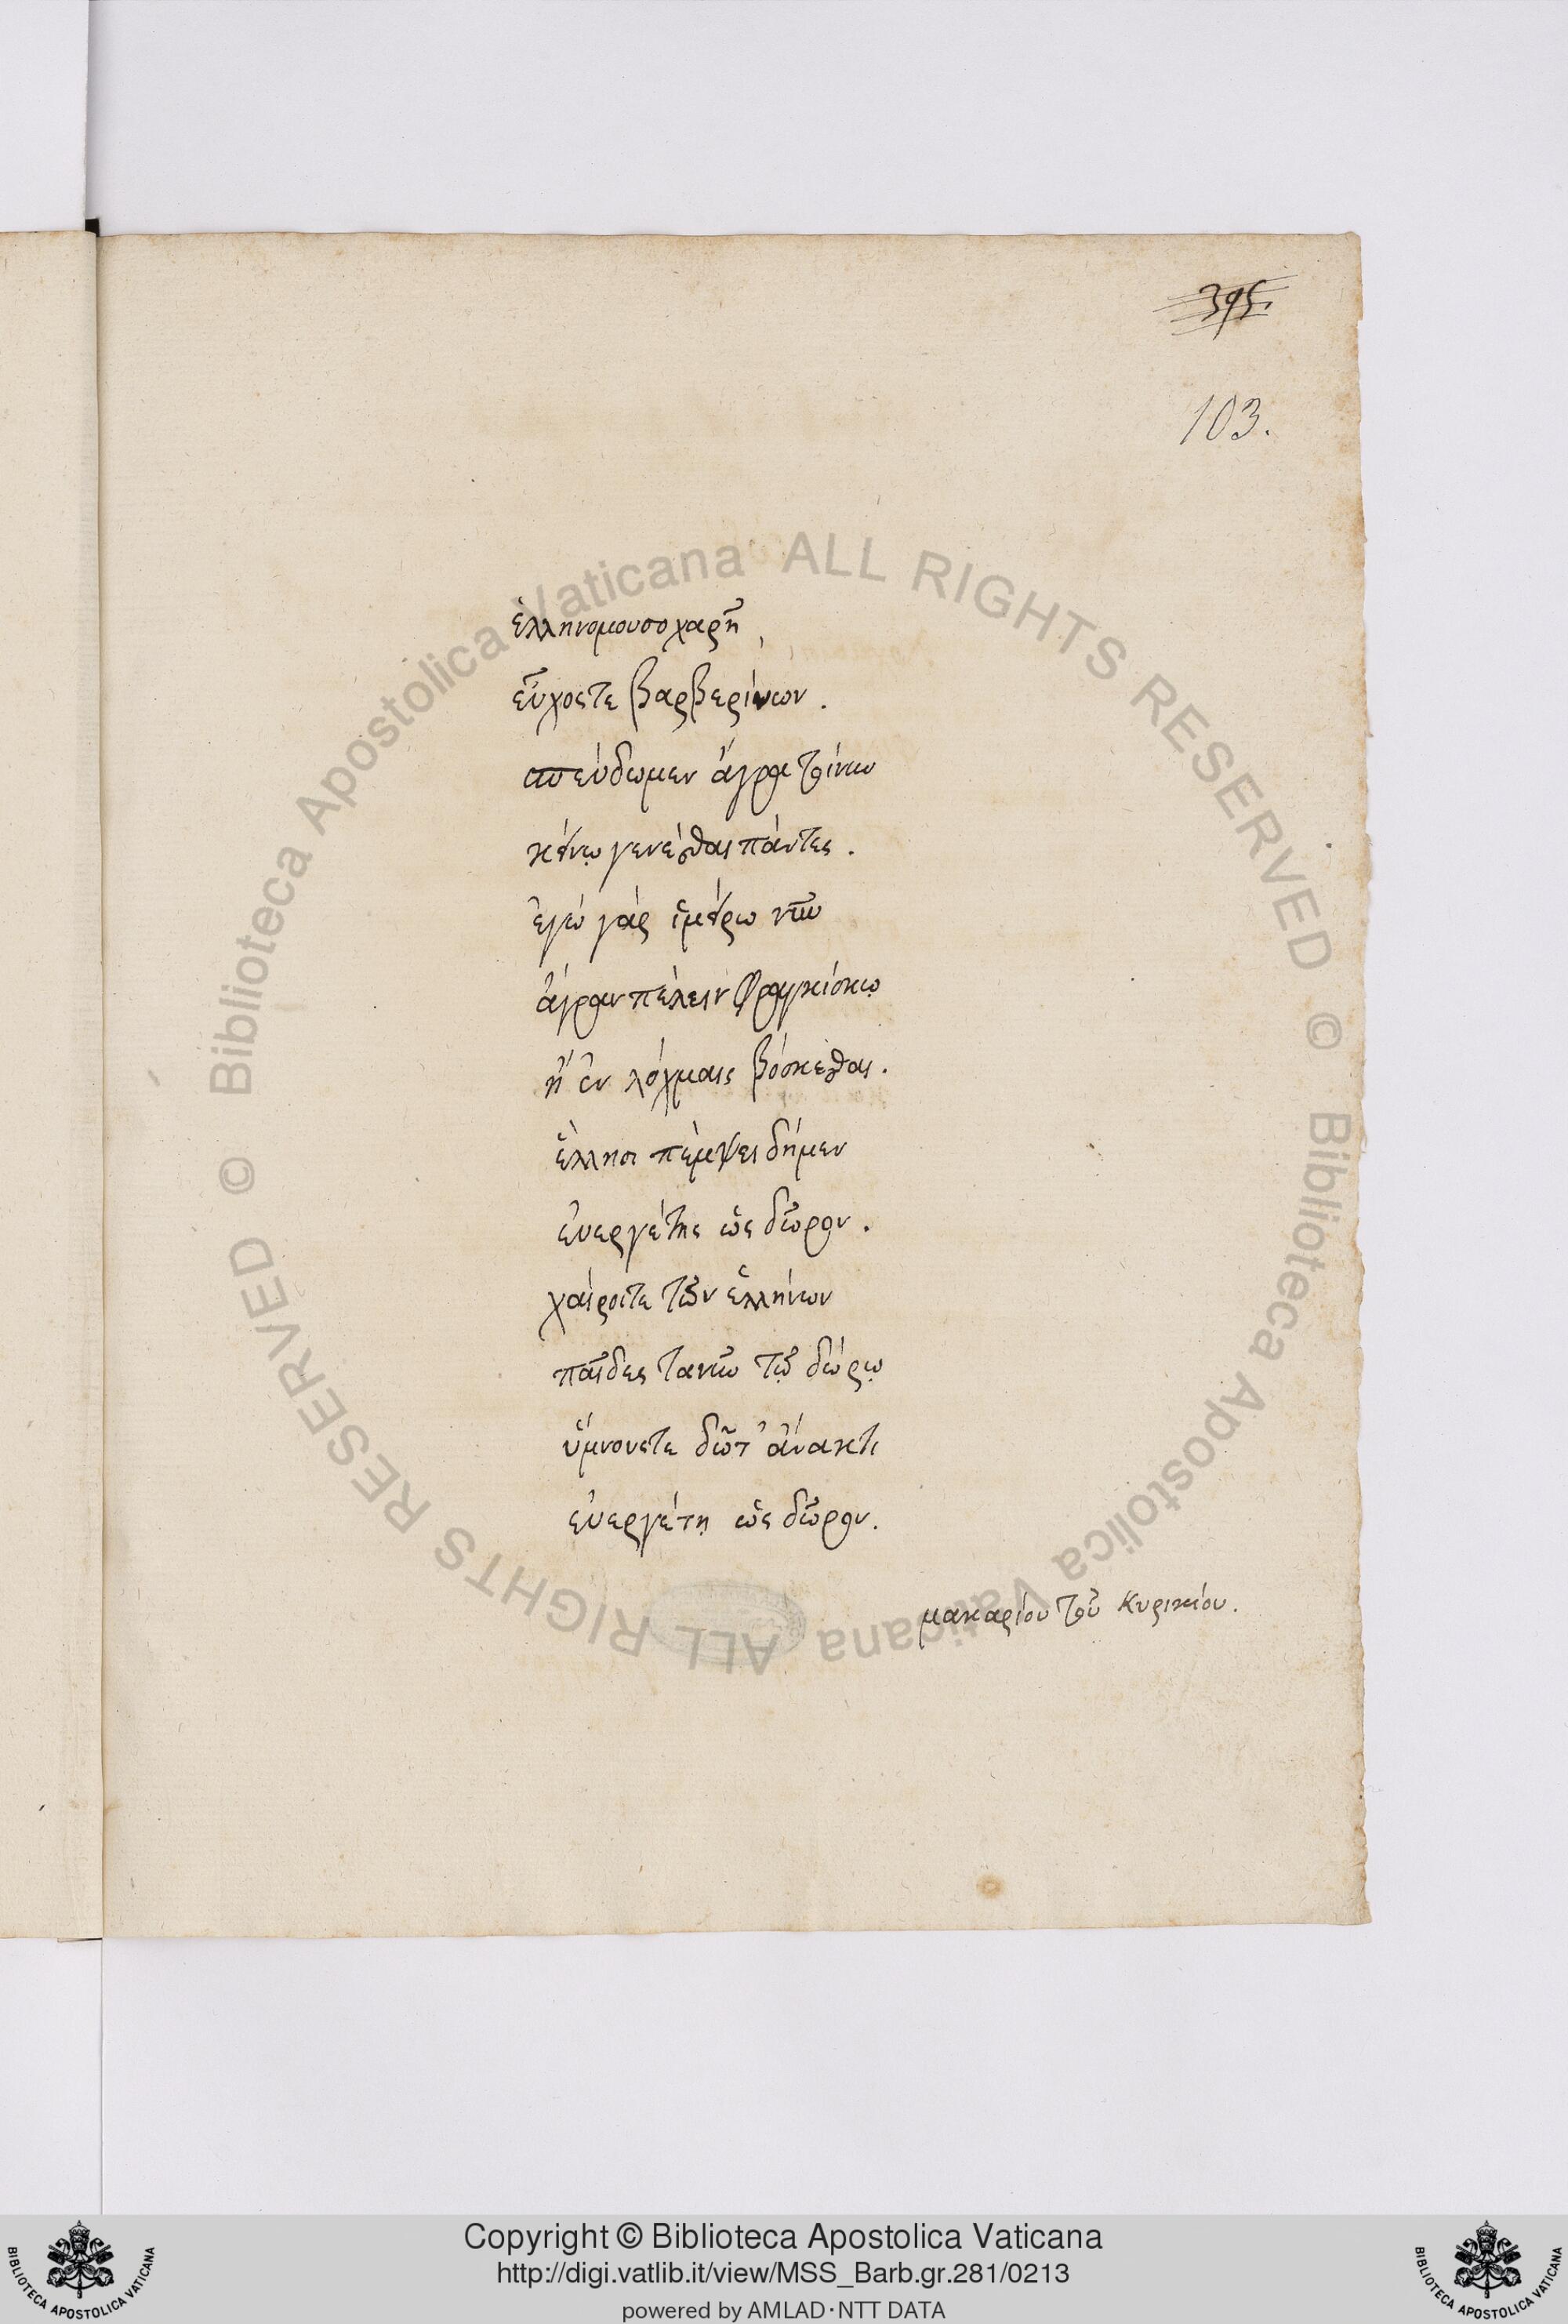 395.
103.
ἑλληνομουσοχαρῆ
εὖχοετε βαρβερίνων.
σπεύδωμεν ἄγρα τοίνυν
κείνῳ γενέσθαι πάντες.
ἐγὼ γάρ ἱμείρω νῦν
ἄγραν πέλειν φραγκίσκῳ
ἢ ἐν λόχμαις βόσκεσθαι.
ἕλλησι πέμψει δήμεν
ἐυεργέτης ὡς δῶρον.
χαίροιτε τῶν ἑλλήνων
παῖδες τανῦν τῷ δώρῳ
ὕμνονετε δῶτ' ἄνακτι
ἐυεργέτῃ ὡς δῶρον.
μακαρίου τοῦ Κυρικίου.
Biblioteca Apostolica Vaticana ALL RIGHTS RESERVED © Biblioteca Apostolica Vaticana ALL RIGHTS RESERVED ©
Copyright © Biblioteca Apostolica Vaticana
http://digi.vatlib.it/view/MSS_Barb.gr.281/0213
powered by AMLAD·NTT DATA
BIBLIOTECA APOSTOLICA VATICANA
BIBLIOTECA APOSTOLICA VATICANA